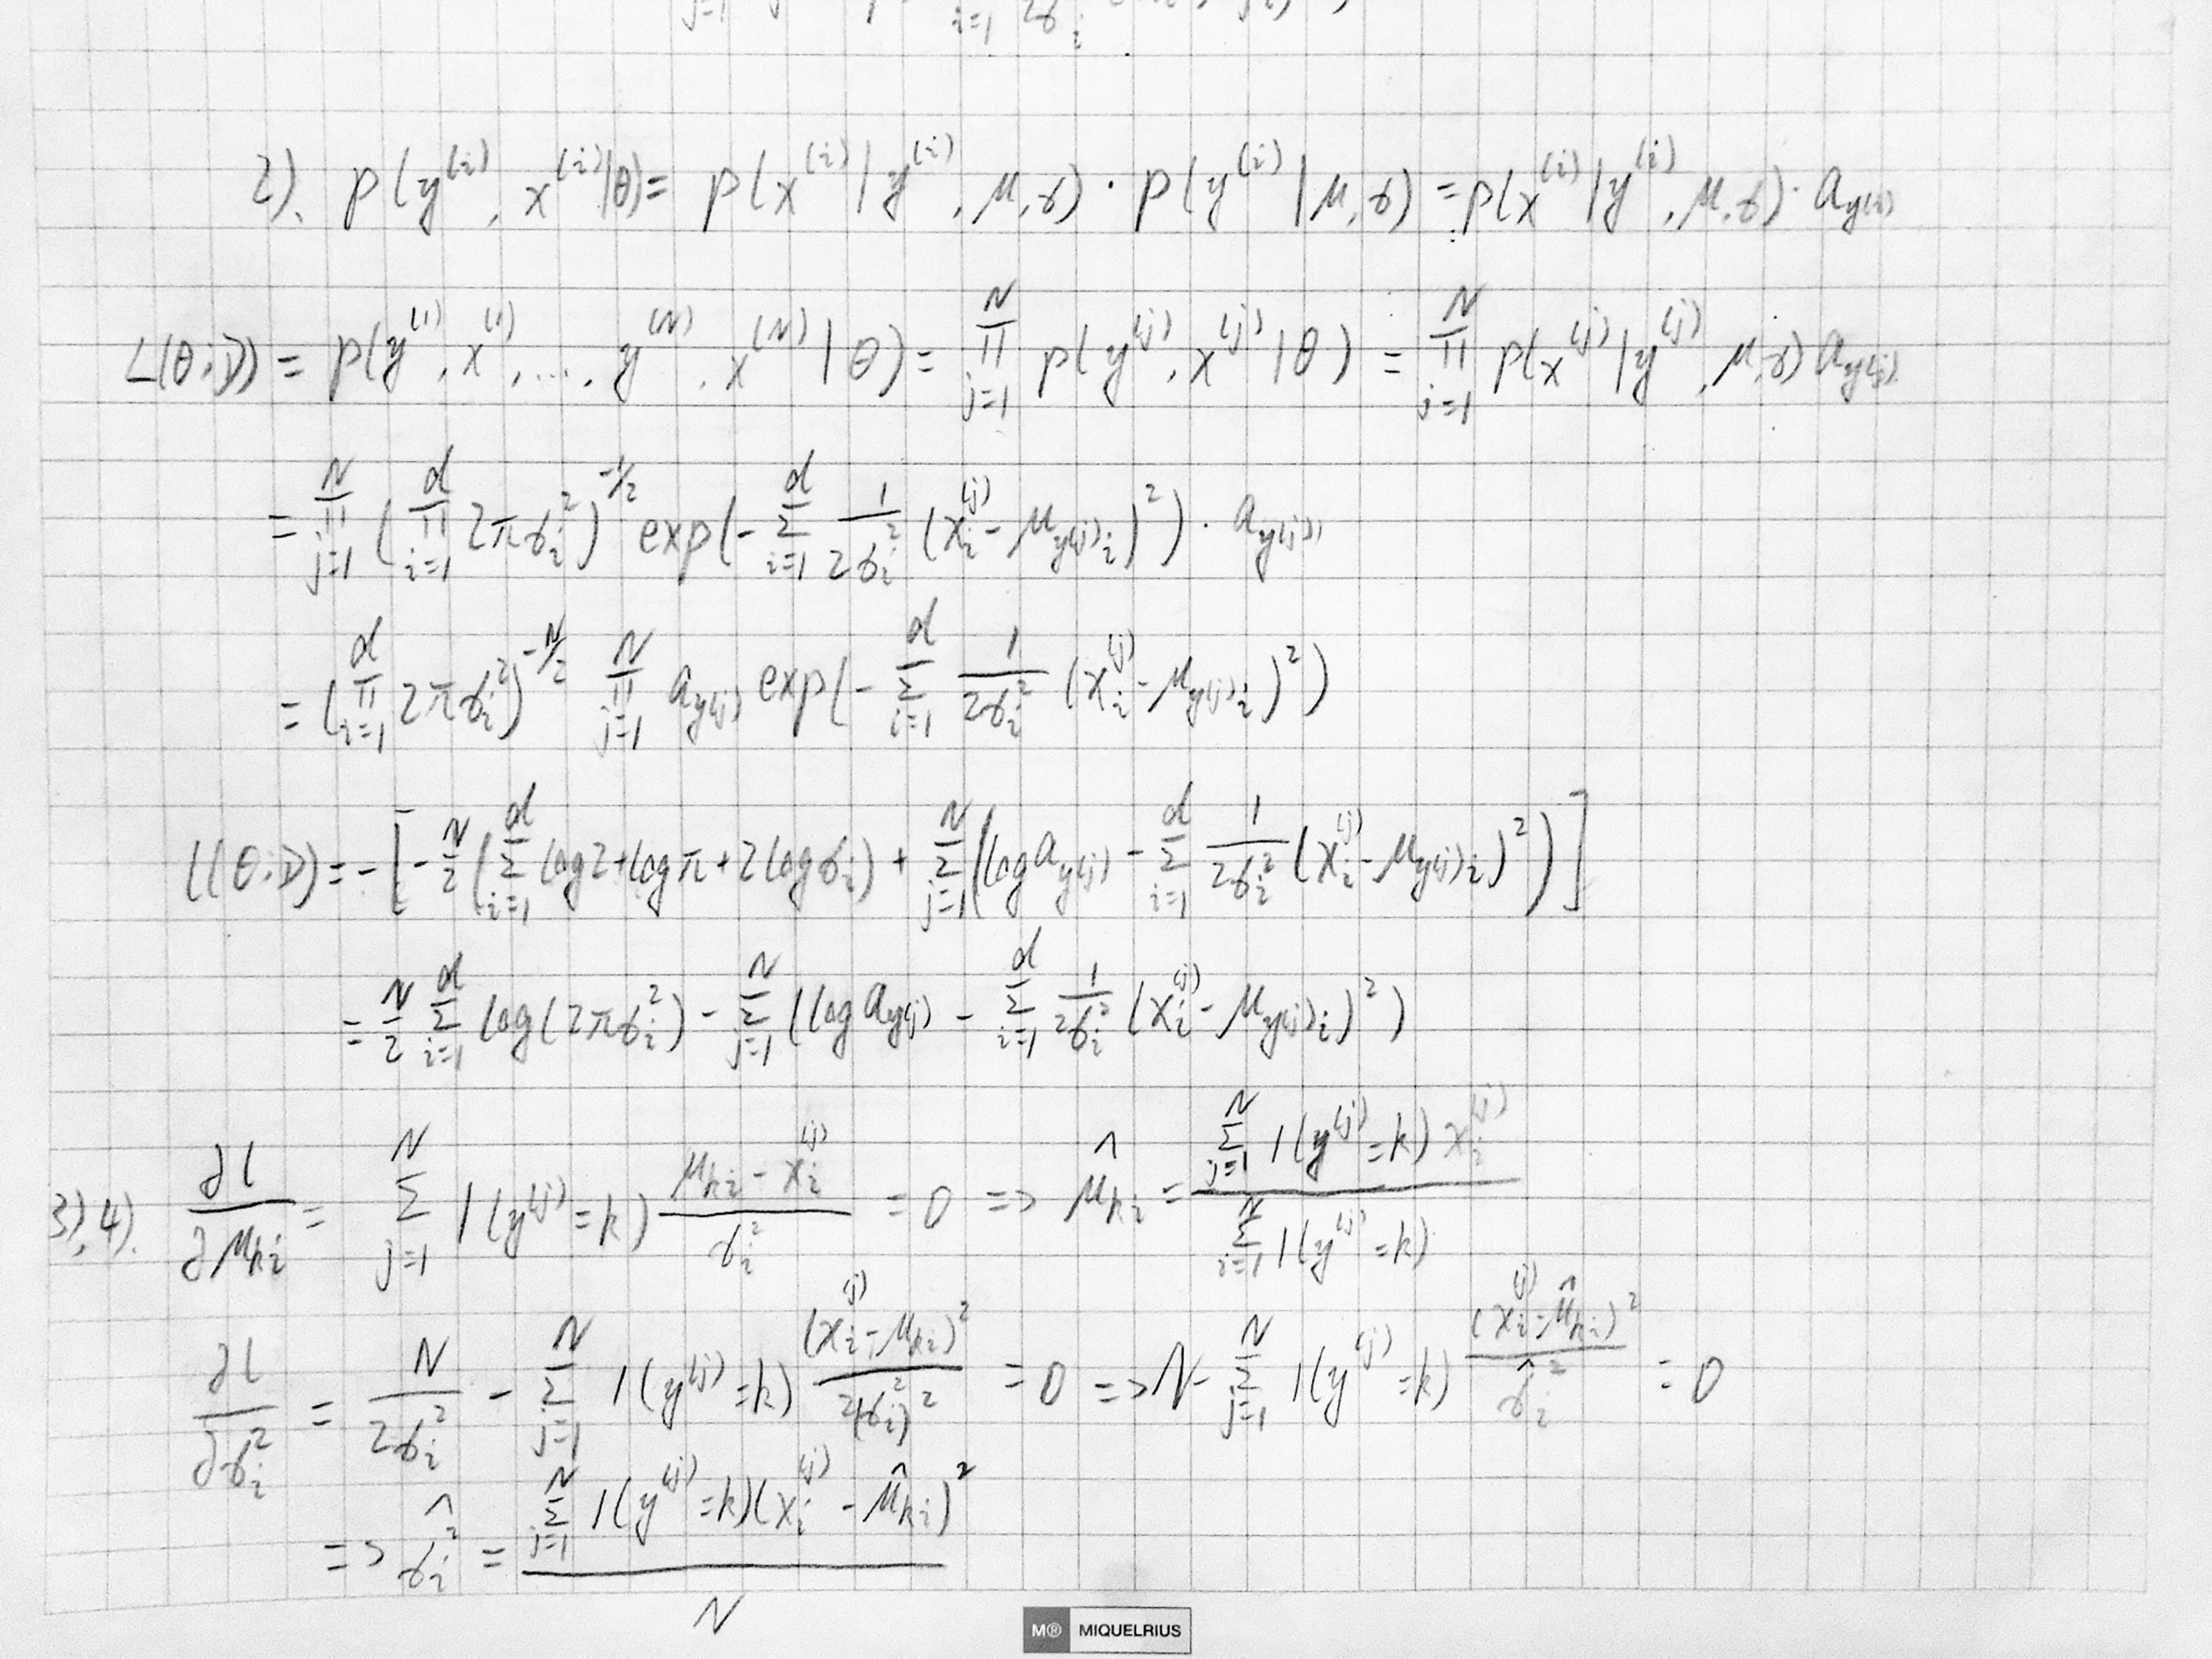 j=1 i=1 2σ_i
2). p(y^(i), x^(i)|θ) = p(x^(i)|y^(i), μ, σ) · p(y^(i)|μ, σ) = p(x^(i)|y^(i), μ, σ) · a_y(i)
L(θ; D) = p(y^(1), x^(1), ..., y^(N), x^(N)|θ) = ∏_{j=1}^N p(y^(j), x^(j)|θ) = ∏_{j=1}^N p(x^(j)|y^(j), μ, σ) a_y(j)
= ∏_{j=1}^N (∏_{i=1}^d 2πσ_i^2)^{-1/2} exp(-∑_{i=1}^d 1/(2σ_i^2) (x_i^(j) - μ_{y(j)i})^2) · a_y(j)
= (∏_{i=1}^d 2πσ_i^2)^{-N/2} ∏_{j=1}^N a_y(j) exp(-∑_{i=1}^d 1/(2σ_i^2) (x_i^(j) - μ_{y(j)i})^2)
l(θ; D) = -[-N/2 (∑_{i=1}^d log2 + logπ + 2logσ_i) + ∑_{j=1}^N (log a_y(j) - ∑_{i=1}^d 1/(2σ_i^2) (x_i^(j) - μ_{y(j)i})^2)]
= N/2 ∑_{i=1}^d log(2πσ_i^2) - ∑_{j=1}^N (log a_y(j) - ∑_{i=1}^d 1/(2σ_i^2) (x_i^(j) - μ_{y(j)i})^2)
3), 4). ∂l/∂μ_ki = ∑_{j=1}^N 1(y^(j) = k) (μ_ki - x_i^(j))/σ_i^2 = 0 => μ̂_ki = ∑_{j=1}^N 1(y^(j) = k) x_i^(j) / ∑_{i=1}^N 1(y^(j) = k)
∂l/∂σ_i^2 = N/(2σ_i^2) - ∑_{j=1}^N 1(y^(j) = k) (x_i^(j) - μ_ki)^2/(2(σ_i^2)^2) = 0 => N - ∑_{j=1}^N 1(y^(j) = k) (x_i^(j) - μ̂_ki)^2/σ̂_i^2 = 0
=> σ̂_i^2 = ∑_{j=1}^N 1(y^(j) = k)(x_i^(j) - μ̂_ki)^2 / N
M® MIQUELRIUS